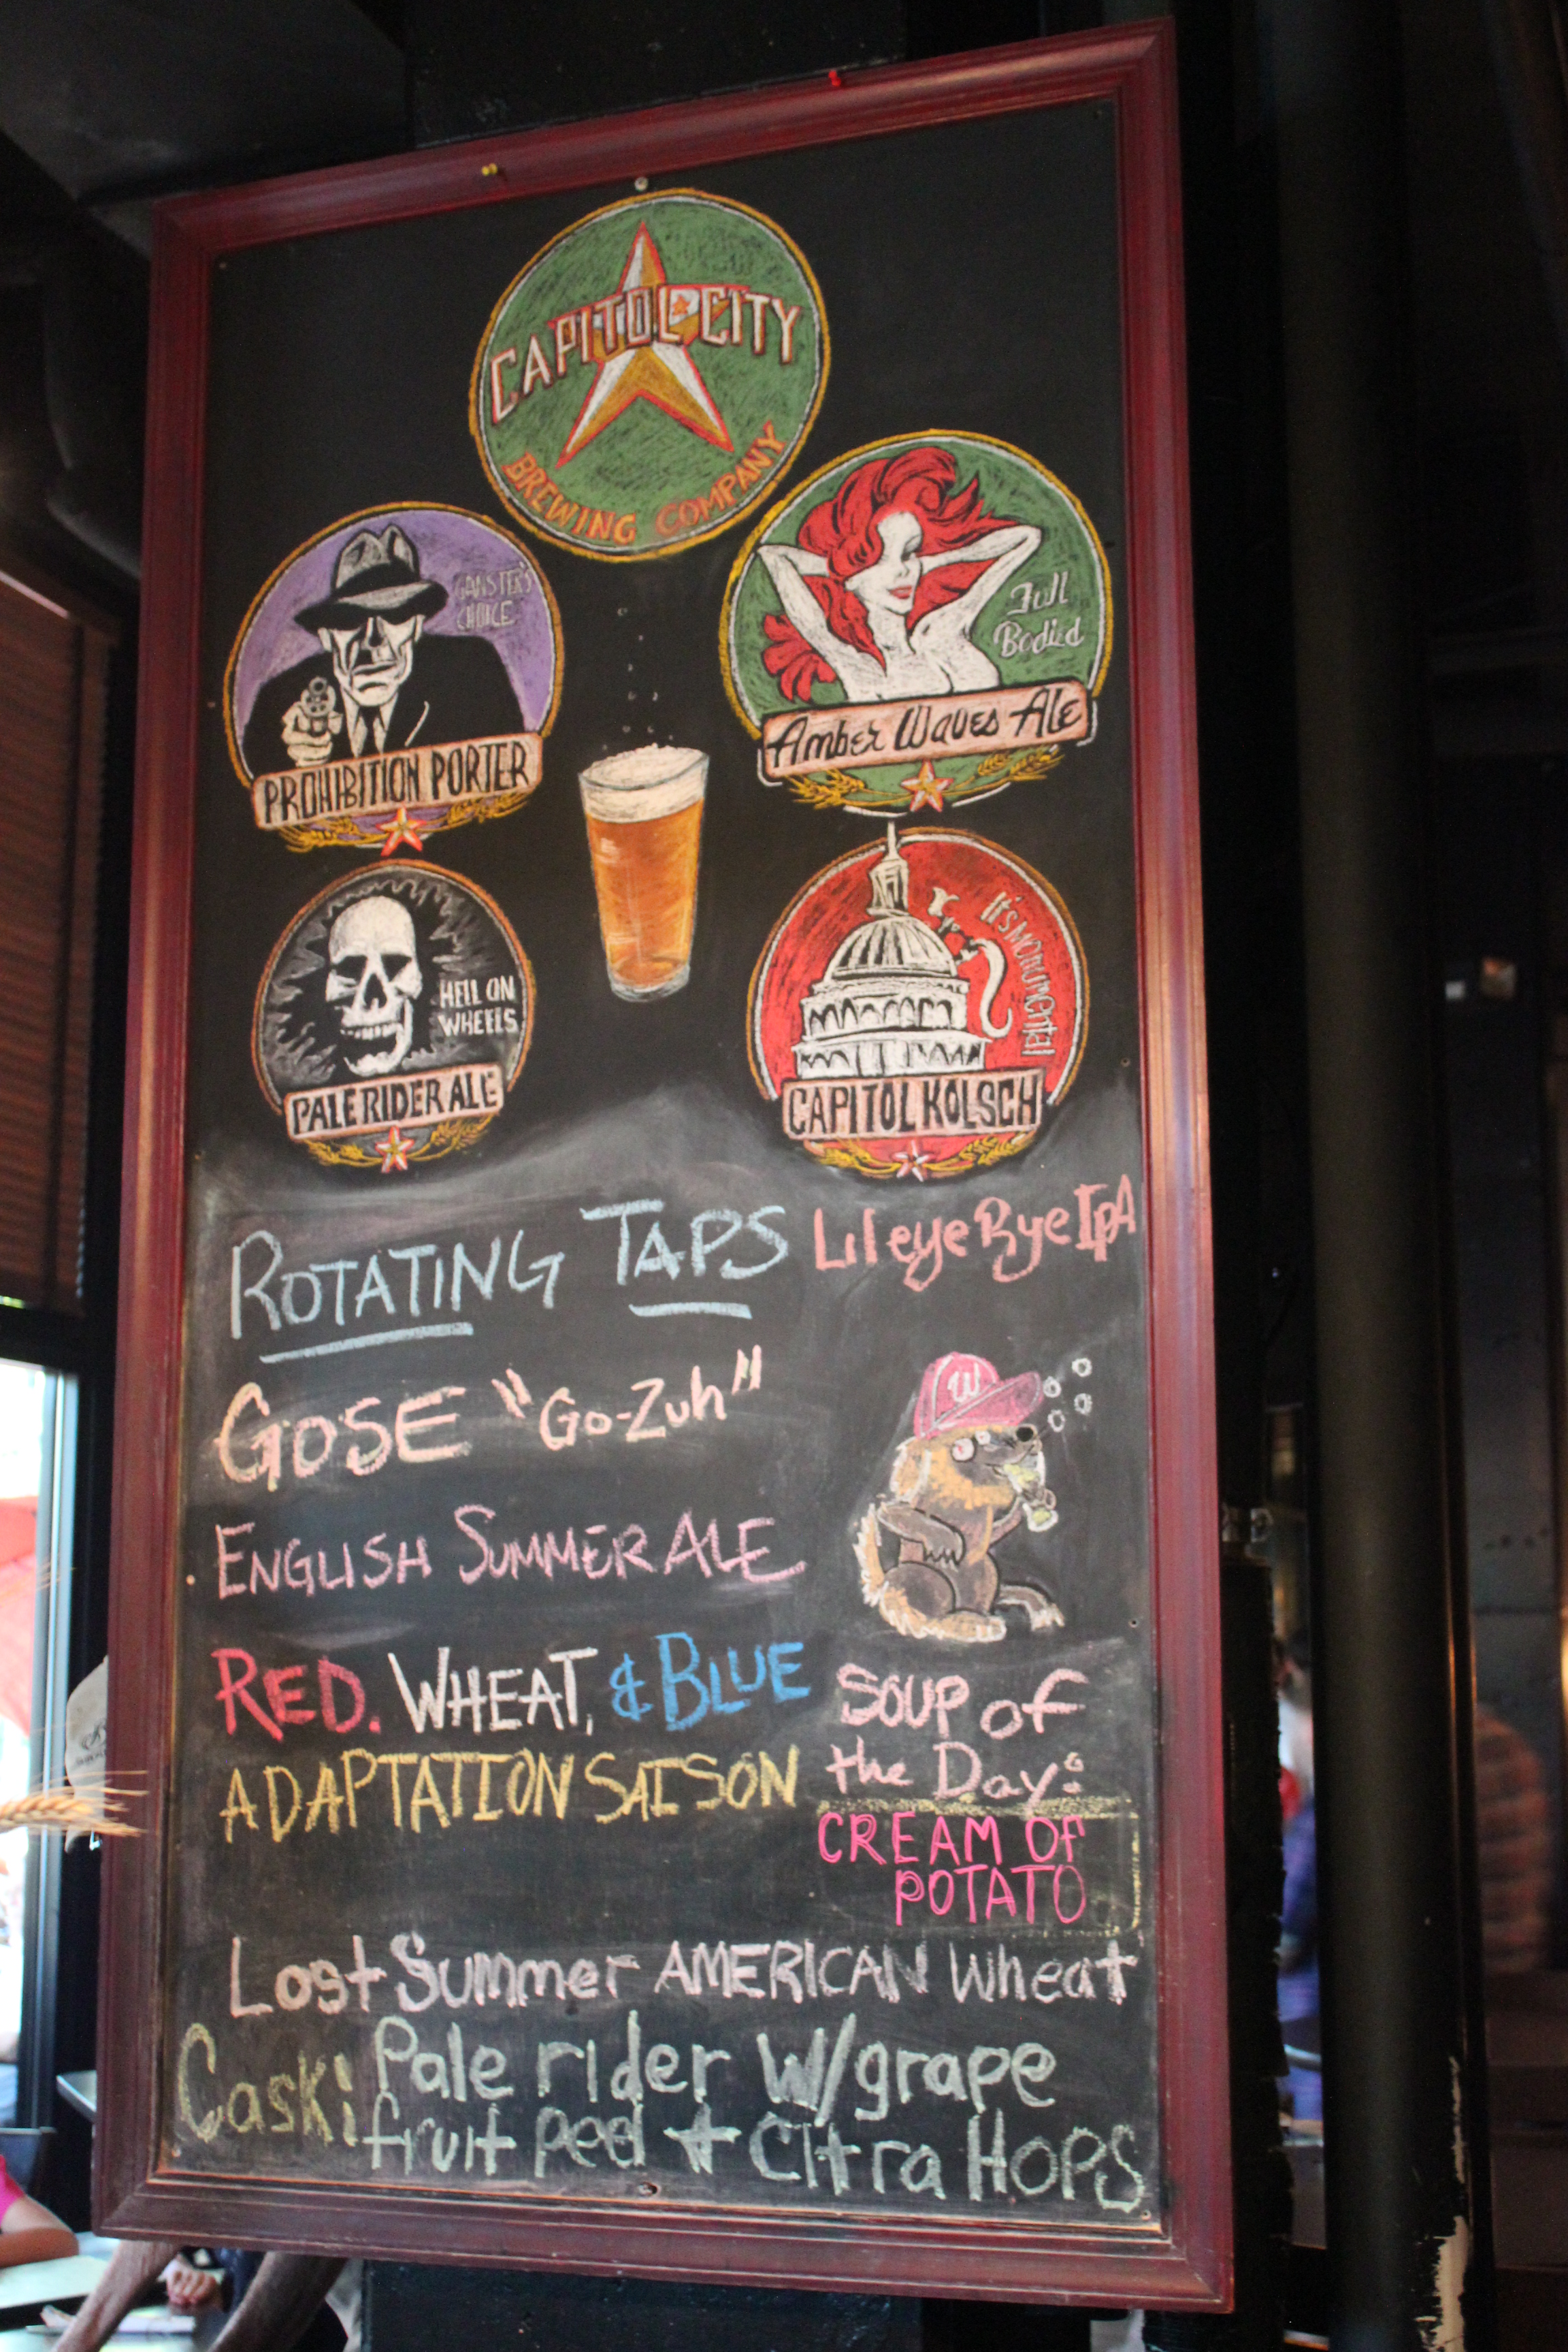 CAPITOL CITY
BREWING COMPANY
GANSTER'S
CHOICE
PROHIBITION PORTER
Full
Bodied
Amber Waves Ale
HELL ON
WHEELS
PALE RIDER ALE
It's MONUMENTAL
CAPITOL KOLSCH
ROTATING TAPS
Lil eye Rye IPA
GOSE "Go-Zuh"
W
ENGLISH SUMMER ALE
RED, WHEAT, & BLUE
ADAPTATION SAISON
SOUP of
the Day:
CREAM OF
POTATO
Lost Summer AMERICAN Wheat
Cask: Pale rider W/grape
fruit peel + Citra HOPS